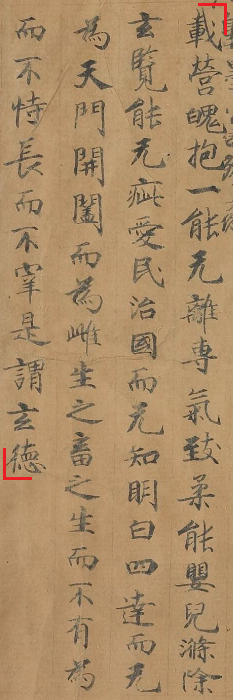 載營魄抱一能无離專氣致柔能嬰兒滌除
玄覽能无疵愛民治國而无知明白四達而无
為天門開闔而為雌生之畜之生而不有為
而不恃長而不宰是謂玄德